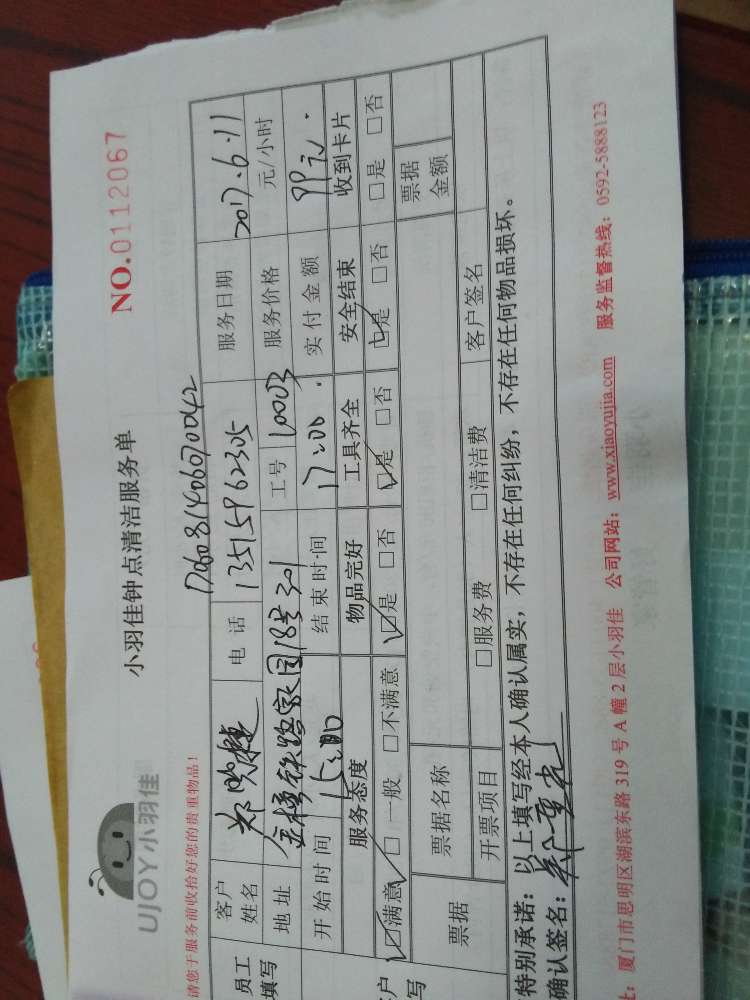 UJOY小羽佳
小羽佳钟点清洁服务单
NO.0112067
请您于服务前收拾好您的贵重物品！
1706081406070042
员工
填写
客户
姓名
电 话 13515962305 服务日期 2017.6.11
地 址 金桥铁路家园18号301 工号 10003 服务价格 元/小时
开 始 时 间 15:00 结 束 时 间 17:00. 实 付 金 额 99元.
户
写
服务态度 物品完好 工具齐全 安全结束 收到卡片
☑满意 □一般 □不满意 ☑是 □否 ☑是 □否 ☑是 □否 □是 □否
票据 票据名称 票据
金额
开票项目 □服务费 □清洁费 客户签名
特别承诺：以上填写经本人确认属实，不存在任何纠纷，不存在任何物品损坏。
确认签名：
厦门市思明区湖滨东路 319 号 A 幢 2 层小羽佳 公司网站：www.xiaoyujia.com 服务监督热线：0592-5888123